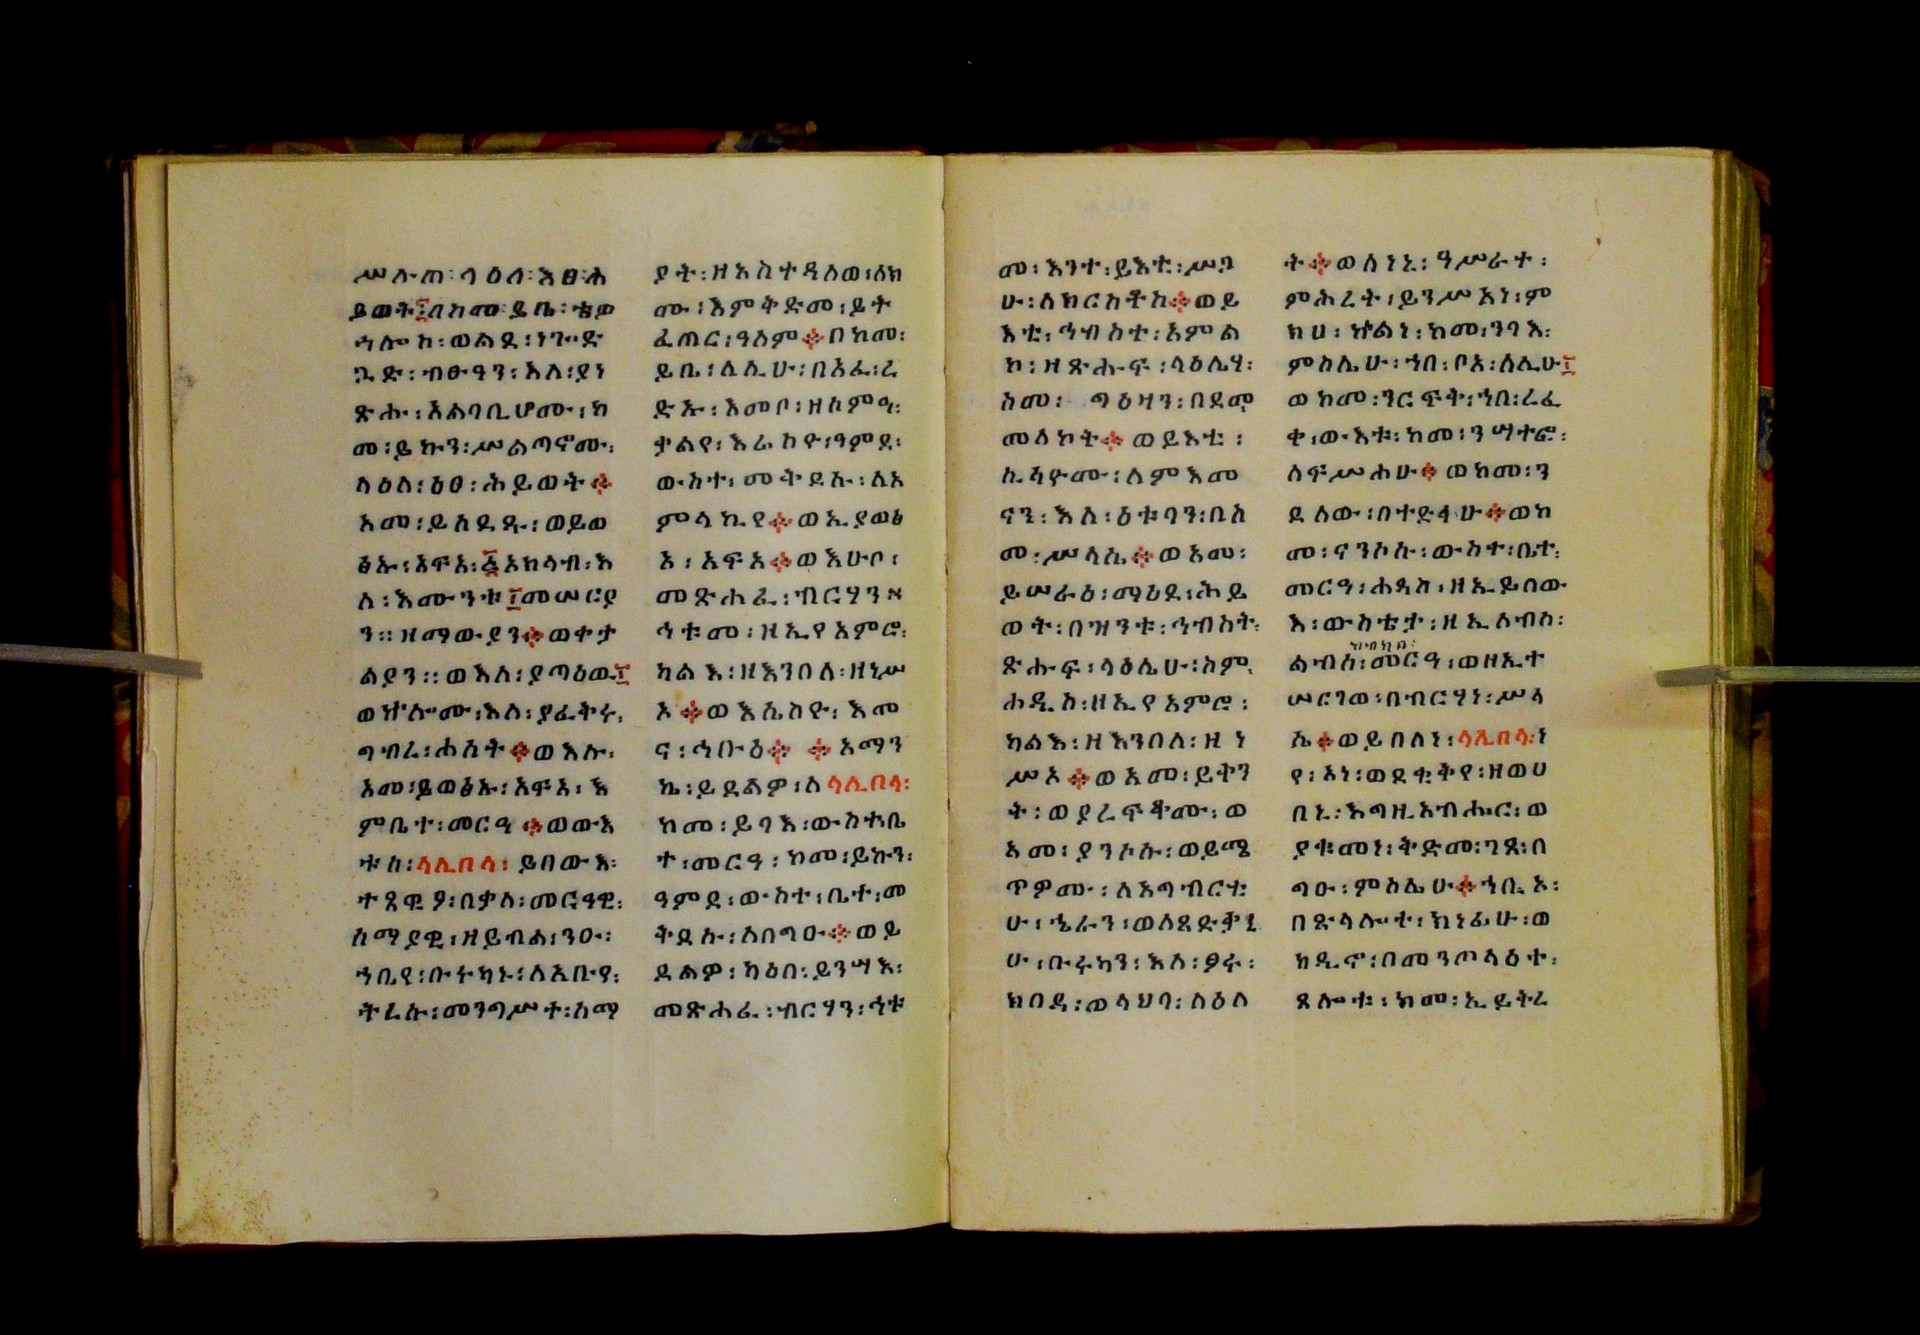 ሥሉጠ፡ላዕለ፡እፀ፡ሕ
ይወት፤በከመ፡ይቤ፡ቴዎ
ኅሎከ፡ወልደ፡ነጐድ
ጓድ፡ብፁዓን፡እለ፡ያነ
ጽሑ፡አልባቢሆሙ፡ከ
መ፡ይኩን፡ሥልጣኖሙ፡
ላዕለ፡ዕፀ፡ሕይወት፨
አመ፡ይሰደዱ፡ወይወ
ፅኡ፡አፍአ፡፭አክላብ፡እ
ለ፡እሙንቱ፤መሠርያ
ን፡፡ዘማውያን፨ወቀታ
ልያን፡፡ወእለ፡ያጣዕው፤
ወኵሎሙ፡እለ፡ያፈትሩ፡
ገብረ፡ሐሰት፨ወእሉ፡
አመ፡ይወፅኡ፡አፍአ፡እ
ምቤተ፡መርዓ፨ወውእ
ቱሰ፡ላሊበላ፡ይበውእ፡
ተጸዊዖ፡በቃለ፡መርዓዊ፡
ሰማያዊ፡ዘይብል፡ንዑ፡
ኀቤየ፡ቡሩካኑ፡ለአቡየ፡
ትረሱ፡መንግሥተ፡ሰማ
ያት፡ዘአስተዳለወ፡ለክ
ሙ፡እምቅድመ፡ይት
ፈጠር፡ዓለም፨በከመ፡
ይቤ፡ሊሊሁ፡በአፈ፡ረ
ድኡ፡እመቦ፡ዘሰምዓ፡
ቃልየ፡እሬስዮ፡ዓምደ፡
ውስተ፡መትደሉ፡ለአ
ምላኪየ፨ወኢያወፅ
አ፡አፍአ፨ወእሁቦ፡
መጽሐፈ፡ብርሃንአ
ኅቱመ፡ዘኢየአምሮ፡
ካልእ፡ዘእንበለ፡ዘነሥ
አ፨ወእሬስዮ፡እመ
ና፡ኅቡዕ፨፨አማን
ኬ፡ይደልዎ፡ለላሊበላ፡
ከመ፡ይባእ፡ውስተቤ
ተ፡መርዓ፡ከመ፡ይኩን፡
ዓምደ፡ውስተ፡ቤተ፡መ
ቅደሱ፡ለበግዑ፨ወይ
ደልዎ፡ካዕበ፡ይንሣእ፡
መጽሐፈ፡ብርሃን፡ኅቱ
መ፡እንተ፡ይእቲ፡ሥጋ
ሁ፡ለክርስቶስ፨ወይ
እቲ፡ኅብስተ፡አምል
ኮ፡ዘጽሑፍ፡ላዕሌሃ፡
ስመ፡ጣዕዛን፡በደመ
መለኮት፨ወይእቲ፡
ሲሳዮሙ፡ለምእመ
ናን፡እለ፡ዕቱባን፡በስ
መ፡ሥላሴ፨ወአመ፡
ይሠራዕ፡ማዕደ፡ሕይ
ወት፡በዝንቱ፡ኅብስት፡
ጽሑፍ፡ላዕሌሁ፡ስም
ሐዲስ፡ዘኢየአምሮ፡
ካልእ፡ዘእንበለ፡ዘነ
ሥአ፨ወአመ፡ይትገ
ት፡ወያረፍቆሙ፡ወ
አመ፡ያንሶሱ፡ወይሜ
ጥዎሙ፡ለአግብርቲ
ሁ፡ኄራን፡ወለጻድቃኒ
ሁ፡ቡሩካን፡እለ፡ፆሩ፡
ክበዳ፡ወላህባ፡ለዕለ
ት፨ወለነኒ፡ዓሥራተ፡
ምሕረት፡ይንሥአነ፡ም
ክሀ፡ኵልነ፡ከመ፡ንባእ፡
ምስሌሁ፡ኀበ፡ቦአ፡ሰሊሁ፤
ወከመ፡ንርፍቅ፡ኀበ፡ረፈ
ቀ፡ውእቱ፡ከመ፡ንሣተፎ፡
ለፍሥሐሁ፨ወከመ፡ን
ደለው፡በተድላሁ፨ወከ
መ፡ናንሶሱ፡ውስተ፡ቤተ፡
መርዓ፡ሐዲስ፡ዘኢይበው
እ፡ውስቴታ፡ዘኢለብሰ፡
ልብሰ፡መርዓ፡ወዘኢተ
ሠርገወ፡በብርሃነ፡ሥላ
ሴ፨ወይበለነ፡ላሊበላ፡ነ
የ፡አነ፡ወደቂቅየ፡ዘወሀ
በኒ፡እግዚአብሔር፡ወ
ያቁመነ፡ቅድመ፡ገጸ፡በ
ግዑ፡ምስሌሁ፨ኀቤአ፡
በጽላሎተ፡ክነፊሁ፡ወ
ከዲኖ፡በመንጦላዕተ፡
ጸሎቱ፡ከመ፡ኢይትረ